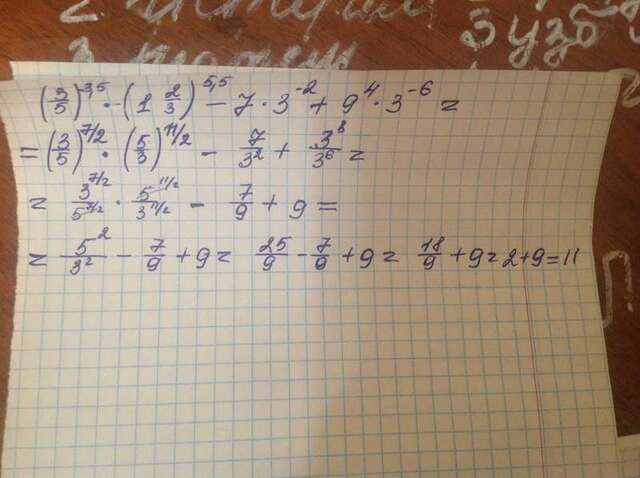 2.
3 узб
(3/5)^3,5 · (1 2/3)^5,5 − 7 · 3^-2 + 9^4 · 3^-6 =
= (3/5)^7/2 · (5/3)^11/2 − 7/3^2 + 3^8/3^6 =
= 3^7/2/5^7/2 · 5^11/2/3^11/2 − 7/9 + 9 =
= 5^2/3^2 − 7/9 + 9 = 25/9 − 7/9 + 9 = 18/9 + 9 = 2 + 9 = 11